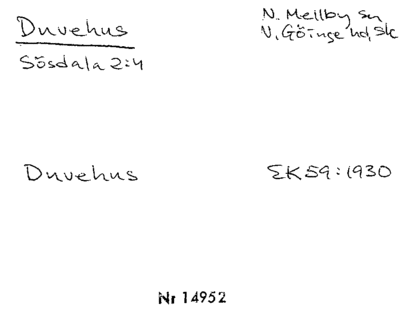 Duvehus
N. Mellby sn
V. Göinge hd, Sk
Sösdala 2:4
Duvehus
EK 59:1930
Nr 14952